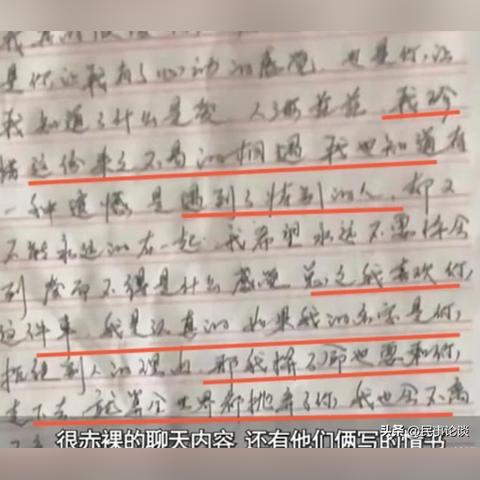 是你让我有了心动的感觉 也是你,让
我知道了什么是爱 人海茫茫 我珍
惜这份来之不易的相遇 我也知道有
一种遗憾是遇到了特别的人,却又
不能永远的在一起,我希望永远不要体会
到 爱而不得是什么感觉 总之我喜欢你,
这件事 我是认真的 如果我的名字是你,
拒绝别人的理由,那我拼了命也要和你,
走下去 就算全世界都抛弃了你,我也会不离
很赤裸的聊天内容,还有他们俩写的情书
头条 @民声论谈